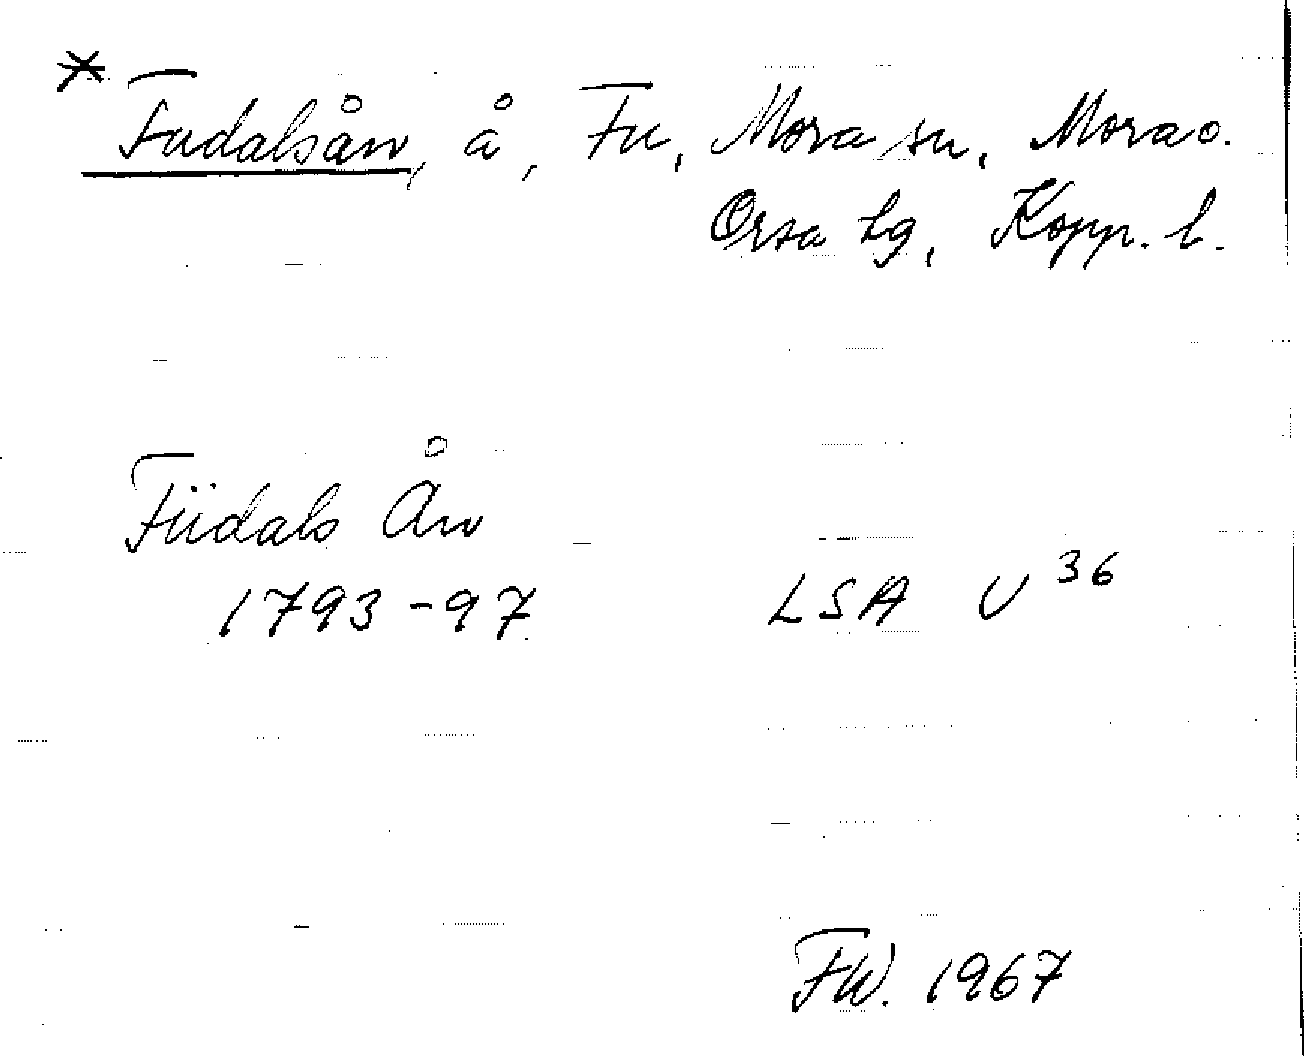 * Fudalsån, å, Fu, Mora sn, Mora o.
Orsa tg, Kopp. l.
Füdals Ån
1793-97 LSA U 36
FW. 1967